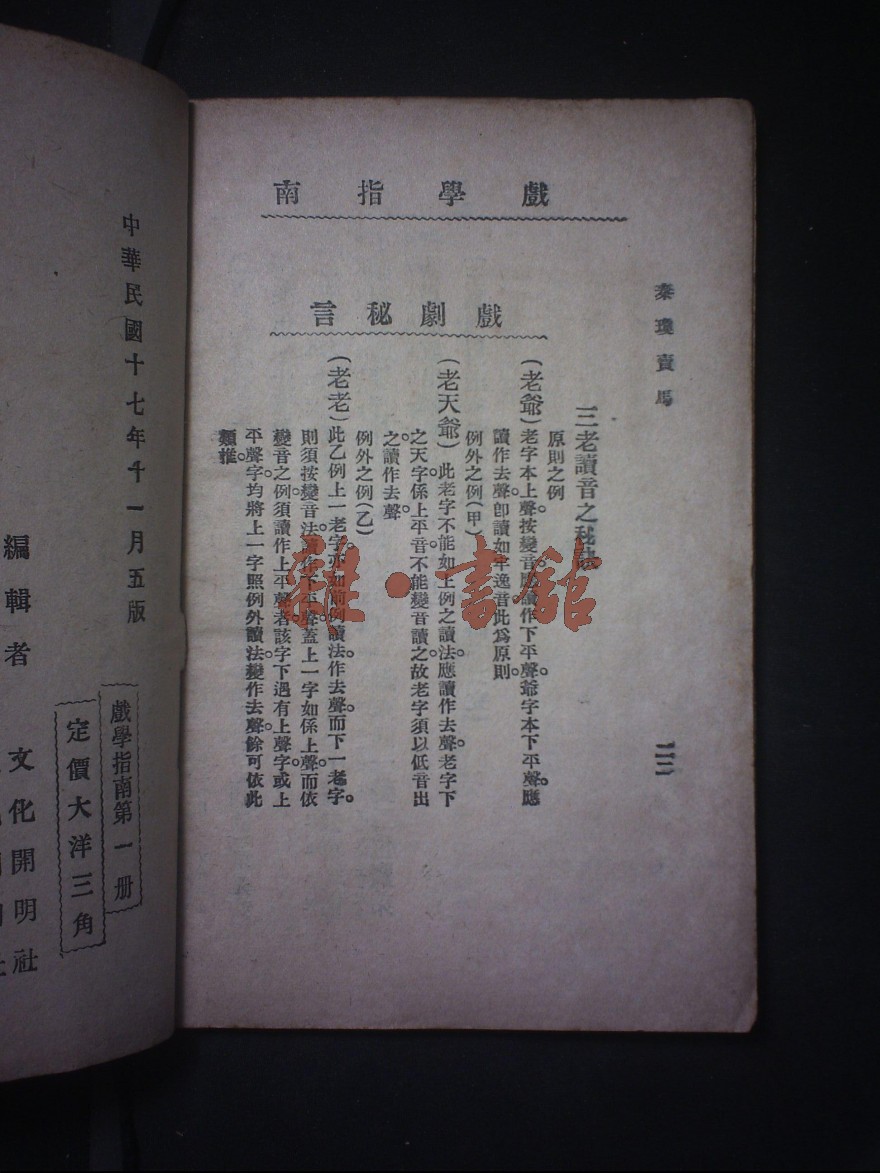 戲學指南
秦瓊賣馬
戲劇秘言
三老讀音之秘訣
原則之例
(老爺)老字本上聲按變音應讀作下平聲。爺字本下平聲。應
讀作去聲。卽讀如牢逸音此爲原則。
例外之例(甲)
(老天爺)此老字不能如上例之讀法。應讀作去聲。老字下
之天字係上平音。不能變音讀之。故老字須以低音出
之。讀作去聲
例外之例(乙)
(老老)此乙例上一老字亦如前例讀法。作去聲。而下一老字。
則須按變音法讀作下平聲。蓋上一字如係上聲。而依
變音之例須讀作上平聲者。該字下遇有上聲字或上
平聲字。均將上一字照例外讀法。變作去聲。餘可依此
類推。
中華民國十七年十一月五版
戲學指南第一册
定價大洋三角
編輯者
文化開明社
雜·書館